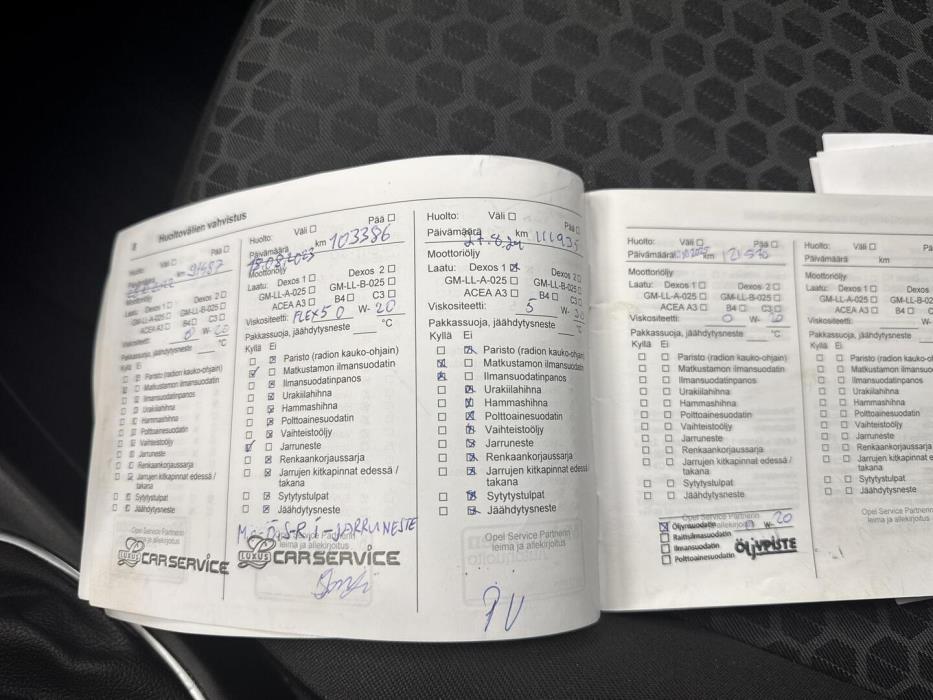 8 Huoltovälien vahvistus
Huolto: Väli ☐ Pää ☐
km 91487
Moottoriöljy
Laatu: Dexos 1 ☐ Dexos 2 ☐
GM-LL-A-025 ☐ GM-LL-B-025 ☐
ACEA A3 ☐ B4 ☐ C3 ☐
Viskositeetti: 0 W- 20
Pakkassuoja, jäähdytysneste °C
Kyllä Ei
Paristo (radion kauko-ohjain)
Matkustamon ilmansuodatin
Ilmansuodatinpanos
Urakiilahihna
Hammashihna
Polttoainesuodatin
Vaihteistoöljy
Jarruneste
Renkaankorjaussarja
Jarrujen kitkapinnat edessä /
takana
Sytytystulpat
Jäähdytysneste
Opel Service Partnerin
leima ja allekirjoitus
LUXUS CARSERVICE
Huolto: Väli ☐ Pää ☐
Päivämäärä km 103386
18.08.2023
Moottoriöljy
Laatu: Dexos 1 ☐ Dexos 2 ☐
GM-LL-A-025 ☐ GM-LL-B-025 ☐
ACEA A3 ☐ B4 ☐ C3 ☐
Viskositeetti: FLEX5 0 W- 20
Pakkassuoja, jäähdytysneste °C
Kyllä Ei
Paristo (radion kauko-ohjain)
Matkustamon ilmansuodatin
Ilmansuodatinpanos
Urakiilahihna
Hammashihna
Polttoainesuodatin
Vaihteistoöljy
Jarruneste
Renkaankorjaussarja
Jarrujen kitkapinnat edessä /
takana
Sytytystulpat
Jäähdytysneste
JARRUNESTE
Opel Service Partnerin
leima ja allekirjoitus
LUXUS CARSERVICE
Huolto: Väli ☐ Pää ☐
Päivämäärä km 111935
27.8.24
Moottoriöljy
Laatu: Dexos 1 ☒ Dexos 2 ☐
GM-LL-A-025 ☐ GM-LL-B-025 ☐
ACEA A3 ☐ B4 ☐ C3 ☐
Viskositeetti: 5 W- 30
Pakkassuoja, jäähdytysneste °C
Kyllä Ei
Paristo (radion kauko-ohjain)
Matkustamon ilmansuodatin
Ilmansuodatinpanos
Urakiilahihna
Hammashihna
Polttoainesuodatin
Vaihteistoöljy
Jarruneste
Renkaankorjaussarja
Jarrujen kitkapinnat edessä /
takana
Sytytystulpat
Jäähdytysneste
Opel Service Partnerin
leima ja allekirjoitus
PV
Huolto: Väli ☐ Pää ☐
Päivämäärä km 121570
Moottoriöljy
Laatu: Dexos 1 ☐ Dexos 2 ☐
GM-LL-A-025 ☐ GM-LL-B-025 ☐
ACEA A3 ☐ B4 ☐ C3 ☐
Viskositeetti: 0 W- 20
Pakkassuoja, jäähdytysneste °C
Kyllä Ei
Paristo (radion kauko-ohjain)
Matkustamon ilmansuodatin
Ilmansuodatinpanos
Urakiilahihna
Hammashihna
Polttoainesuodatin
Vaihteistoöljy
Jarruneste
Renkaankorjaussarja
Jarrujen kitkapinnat edessä /
takana
Sytytystulpat
Jäähdytysneste
Opel Service Partnerin
leima ja allekirjoitus
☒ Öljynsuodatin 0 W- 20
☐ Raitisilmasuodatin
☐ Ilmansuodatin
☐ Polttoainesuodatin
ÖLJYPISTE
Huolto: Väli ☐ Pää
Päivämäärä km
Moottoriöljy
Laatu: Dexos 1 ☐ Dexos 2
GM-LL-A-025 ☐ GM-LL-B-02
ACEA A3 ☐ B4 ☐ C
Viskositeetti: W-
Pakkassuoja, jäähdytysneste
Kyllä Ei
Paristo (radion kauko-oh
Matkustamon ilmansuod
Ilmansuodatinpanos
Urakiilahihna
Hammashihna
Polttoainesuodatin
Vaihteistoöljy
Jarruneste
Renkaankorjaussarja
Jarrujen kitkapinnat e
takana
Sytytystulpat
Jäähdytysneste
Opel Service Partn
leima ja allekirjoitus